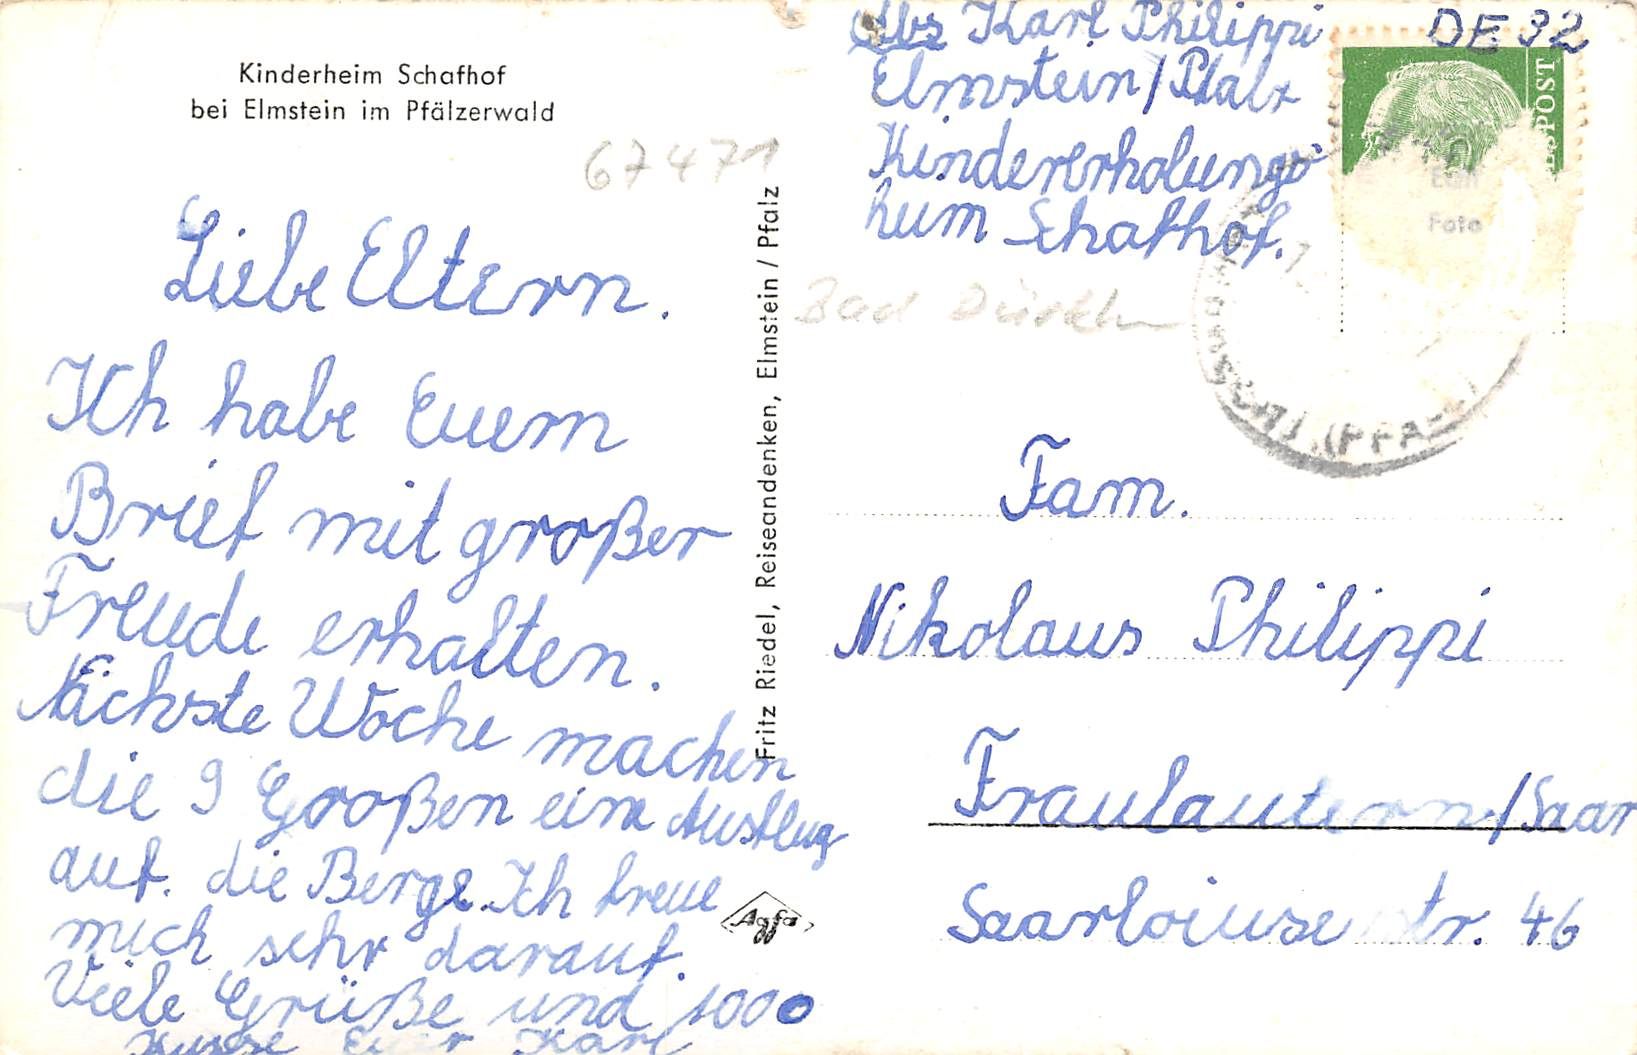 Kinderheim Schafhof
bei Elmstein im Pfälzerwald
67471
Liebe Eltern.
Ich habe Euern
Brief mit großer
Freude erhalten.
Nächste Woche machen
die 9 Großen eine Ausflug
auf. die Berge. Ich freue
mich sehr darauf.
Viele Grüße und 1000
Küsse Euer Karl
Fritz Riedel, Reiseandenken, Elmstein / Pfalz
Agfa
Abs Karl Philippi
Elmstein / Pfalz
Kindererholungs
heim Schafhof.
DE 32
POST
Foto
Bad
Fam.
Nikolaus Philippi
Fraulautern / Saar
Saarlouiser str. 46